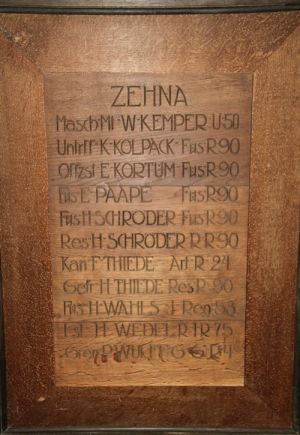 ZEHNA
Masch·Mt·W·KEMPER U·50
Untrff K·KOLPACK Füs R 90
Offzst E·KORTÜM Füs R 90
Füs E·PAAPE Füs R 90
Füs H·SCHRÖDER Füs R 90
Res H·SCHRÖDER R R 90
Kan F·THIEDE Art R 24
Gefr H·THIEDE Res R 90
Füs H·WAHLS J·Reg 58
Lst H·WEDEL R J R 75
Gren